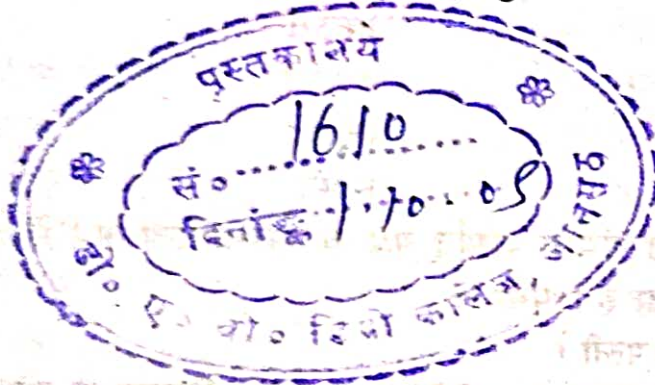 पुस्तकालय
सं० 1610
दिनांक 1.10.05
डी० ए० वी० डिग्री कालेज, जानसठ